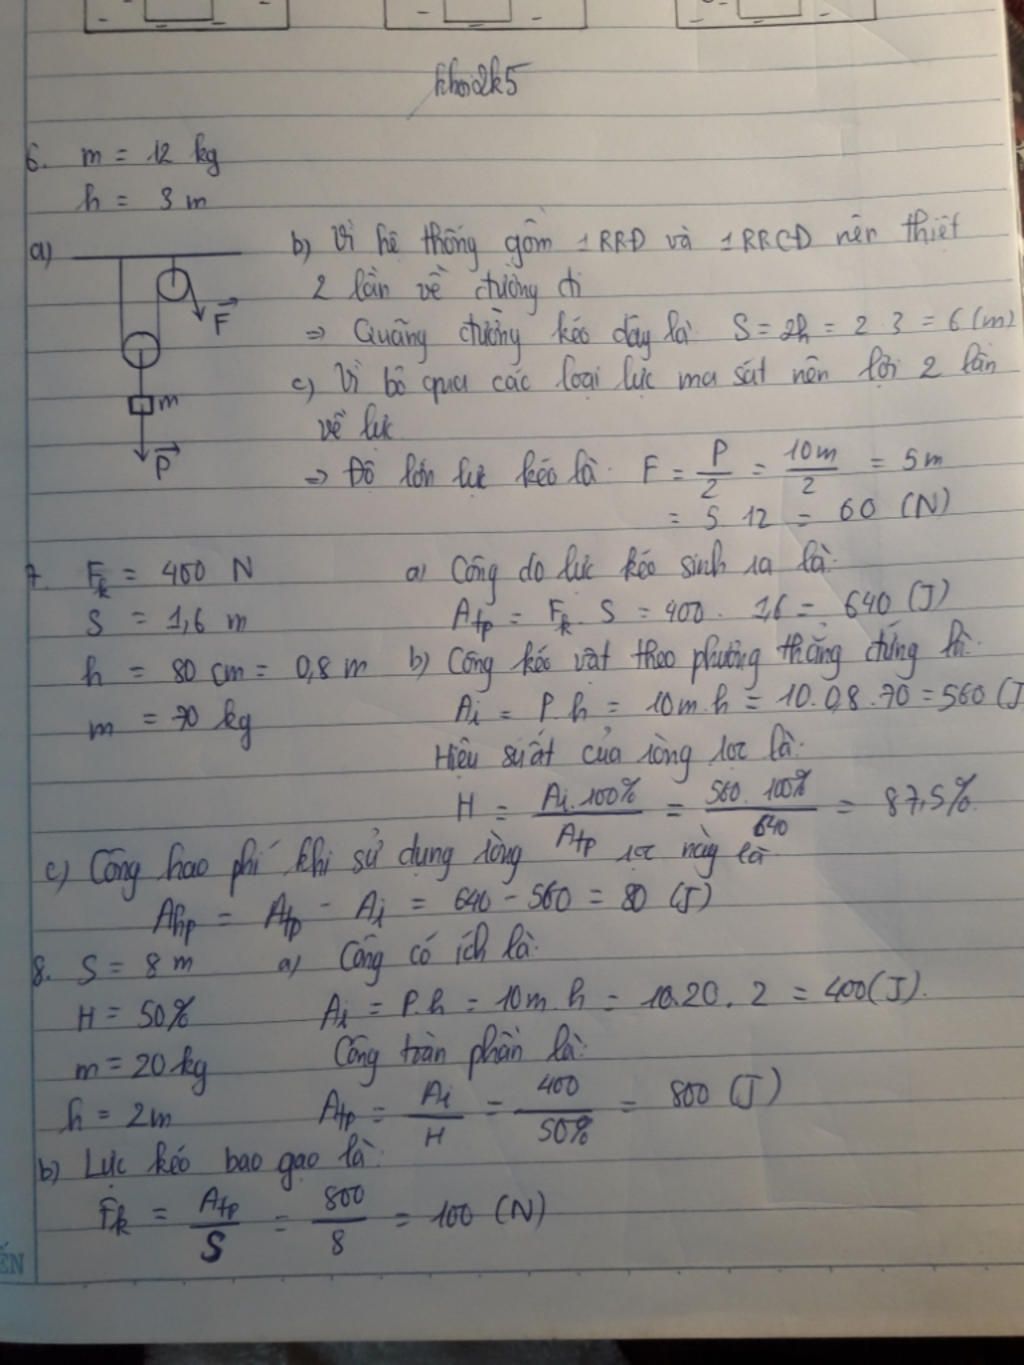 khoi2k5
6. m = 12 kg
h = 3 m
a)
F
m
P
b) Vì hệ thống gồm 1RRĐ và 1RRCĐ nên thiệt
2 lần về đường đi
=> Quãng đường kéo dây là: S = 2h = 2.3 = 6 (m)
c) Vì bỏ qua các loại lực ma sát nên lợi 2 lần
về lực
=> Độ lớn lực kéo là: F = P/2 = 10m/2 = 5m
= 5 . 12 = 60 (N)
7. Fk = 400 N
S = 1,6 m
h = 80 cm = 0,8 m
m = 70 kg
a) Công do lực kéo sinh ra là:
Atp = Fk . S = 400 . 1,6 = 640 (J)
b) Công kéo vật theo phương thẳng đứng là:
Ai = P.h = 10m.h = 10.0,8.70 = 560 (J
Hiệu suất của ròng rọc là:
H = Ai.100%/Atp = 560.100%/640 = 87,5%.
c) Công hao phí khi sử dụng ròng rọc này là
Ahp = Atp - Ai = 640 - 560 = 80 (J)
8. S = 8 m
H = 50%
m = 20 kg
h = 2m
a) Công có ích là:
Ai = P.h = 10m.h = 10.20.2 = 400(J).
Công toàn phần là:
Atp = Ai/H = 400/50% = 800 (J)
b) Lực kéo bao gạo là:
Fk = Atp/S = 800/8 = 100 (N)
ẾN